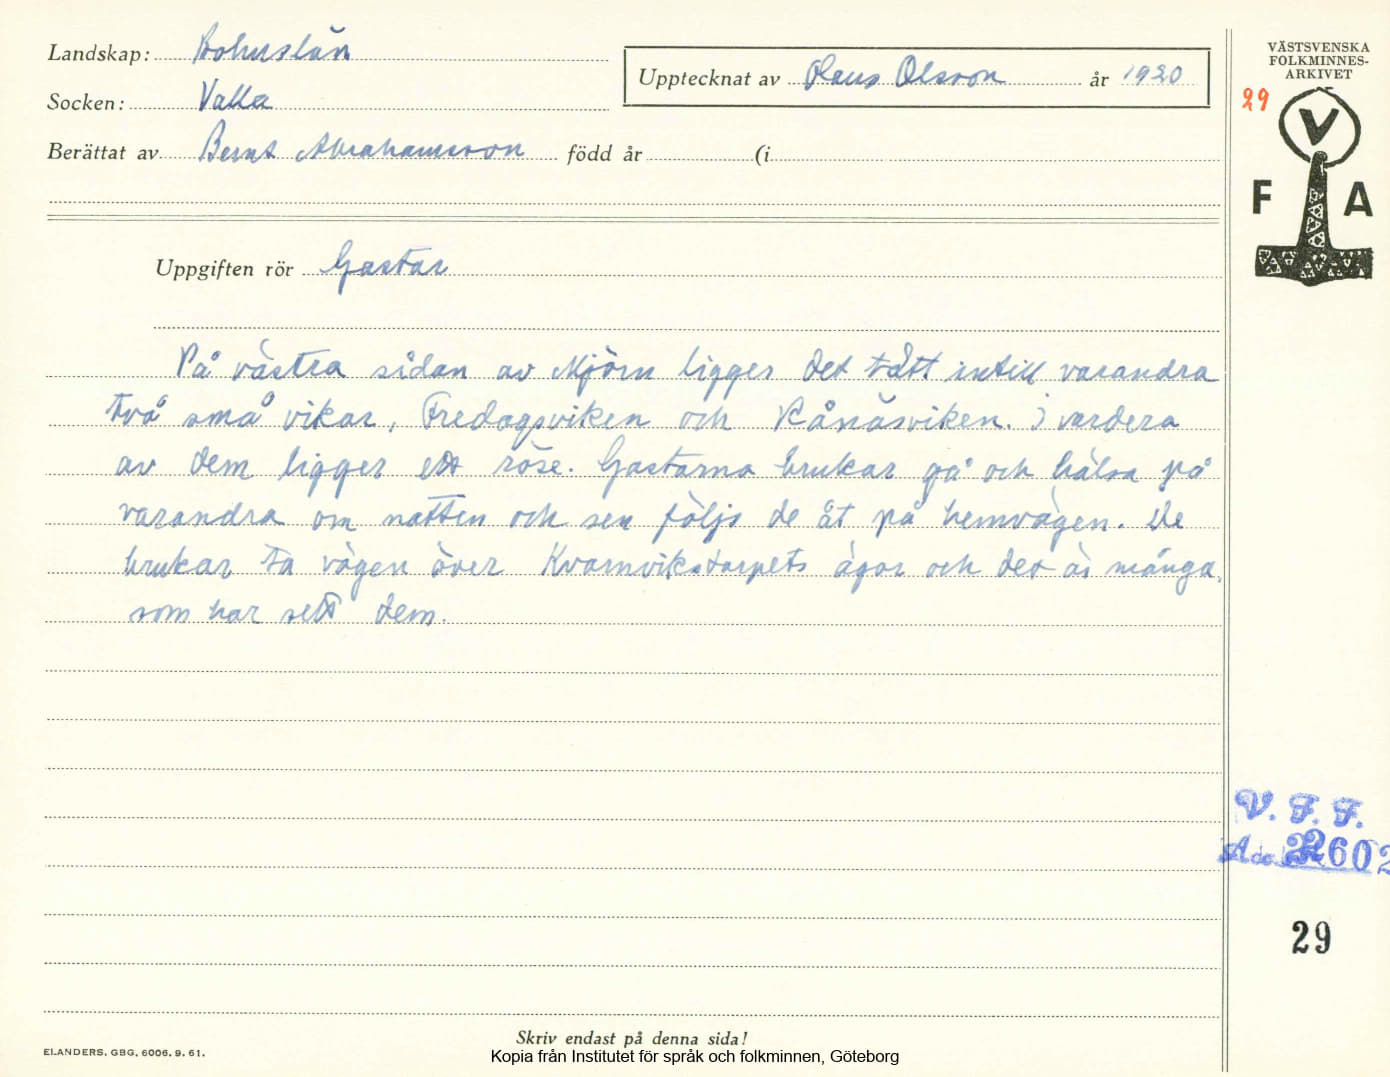 Landskap: Bohuslän
Socken: Valla
Berättat av Bernt Abrahamsson född år (i
Upptecknat av Olaus Olsson år 1920
VÄSTSVENSKA
FOLKMINNES-
ARKIVET
29
V
F A
Uppgiften rör Gastar
På västra sidan av Mjörn ligger det tätt intill varandra
två små vikar, Fredagsviken och Rånäsviken. I vardera
av dem ligger ett röse. Gastarna brukar gå och hälsa på
varandra om natten och sen följs de åt på hemvägen. De
brukar ta vägen över Kvarnvikstorpets ägor och det är många
som har sett dem.
V. F. F.
2602
29
Skriv endast på denna sida!
ELANDERS, GBG, 6006. 9. 61.
Kopia från Institutet för språk och folkminnen, Göteborg